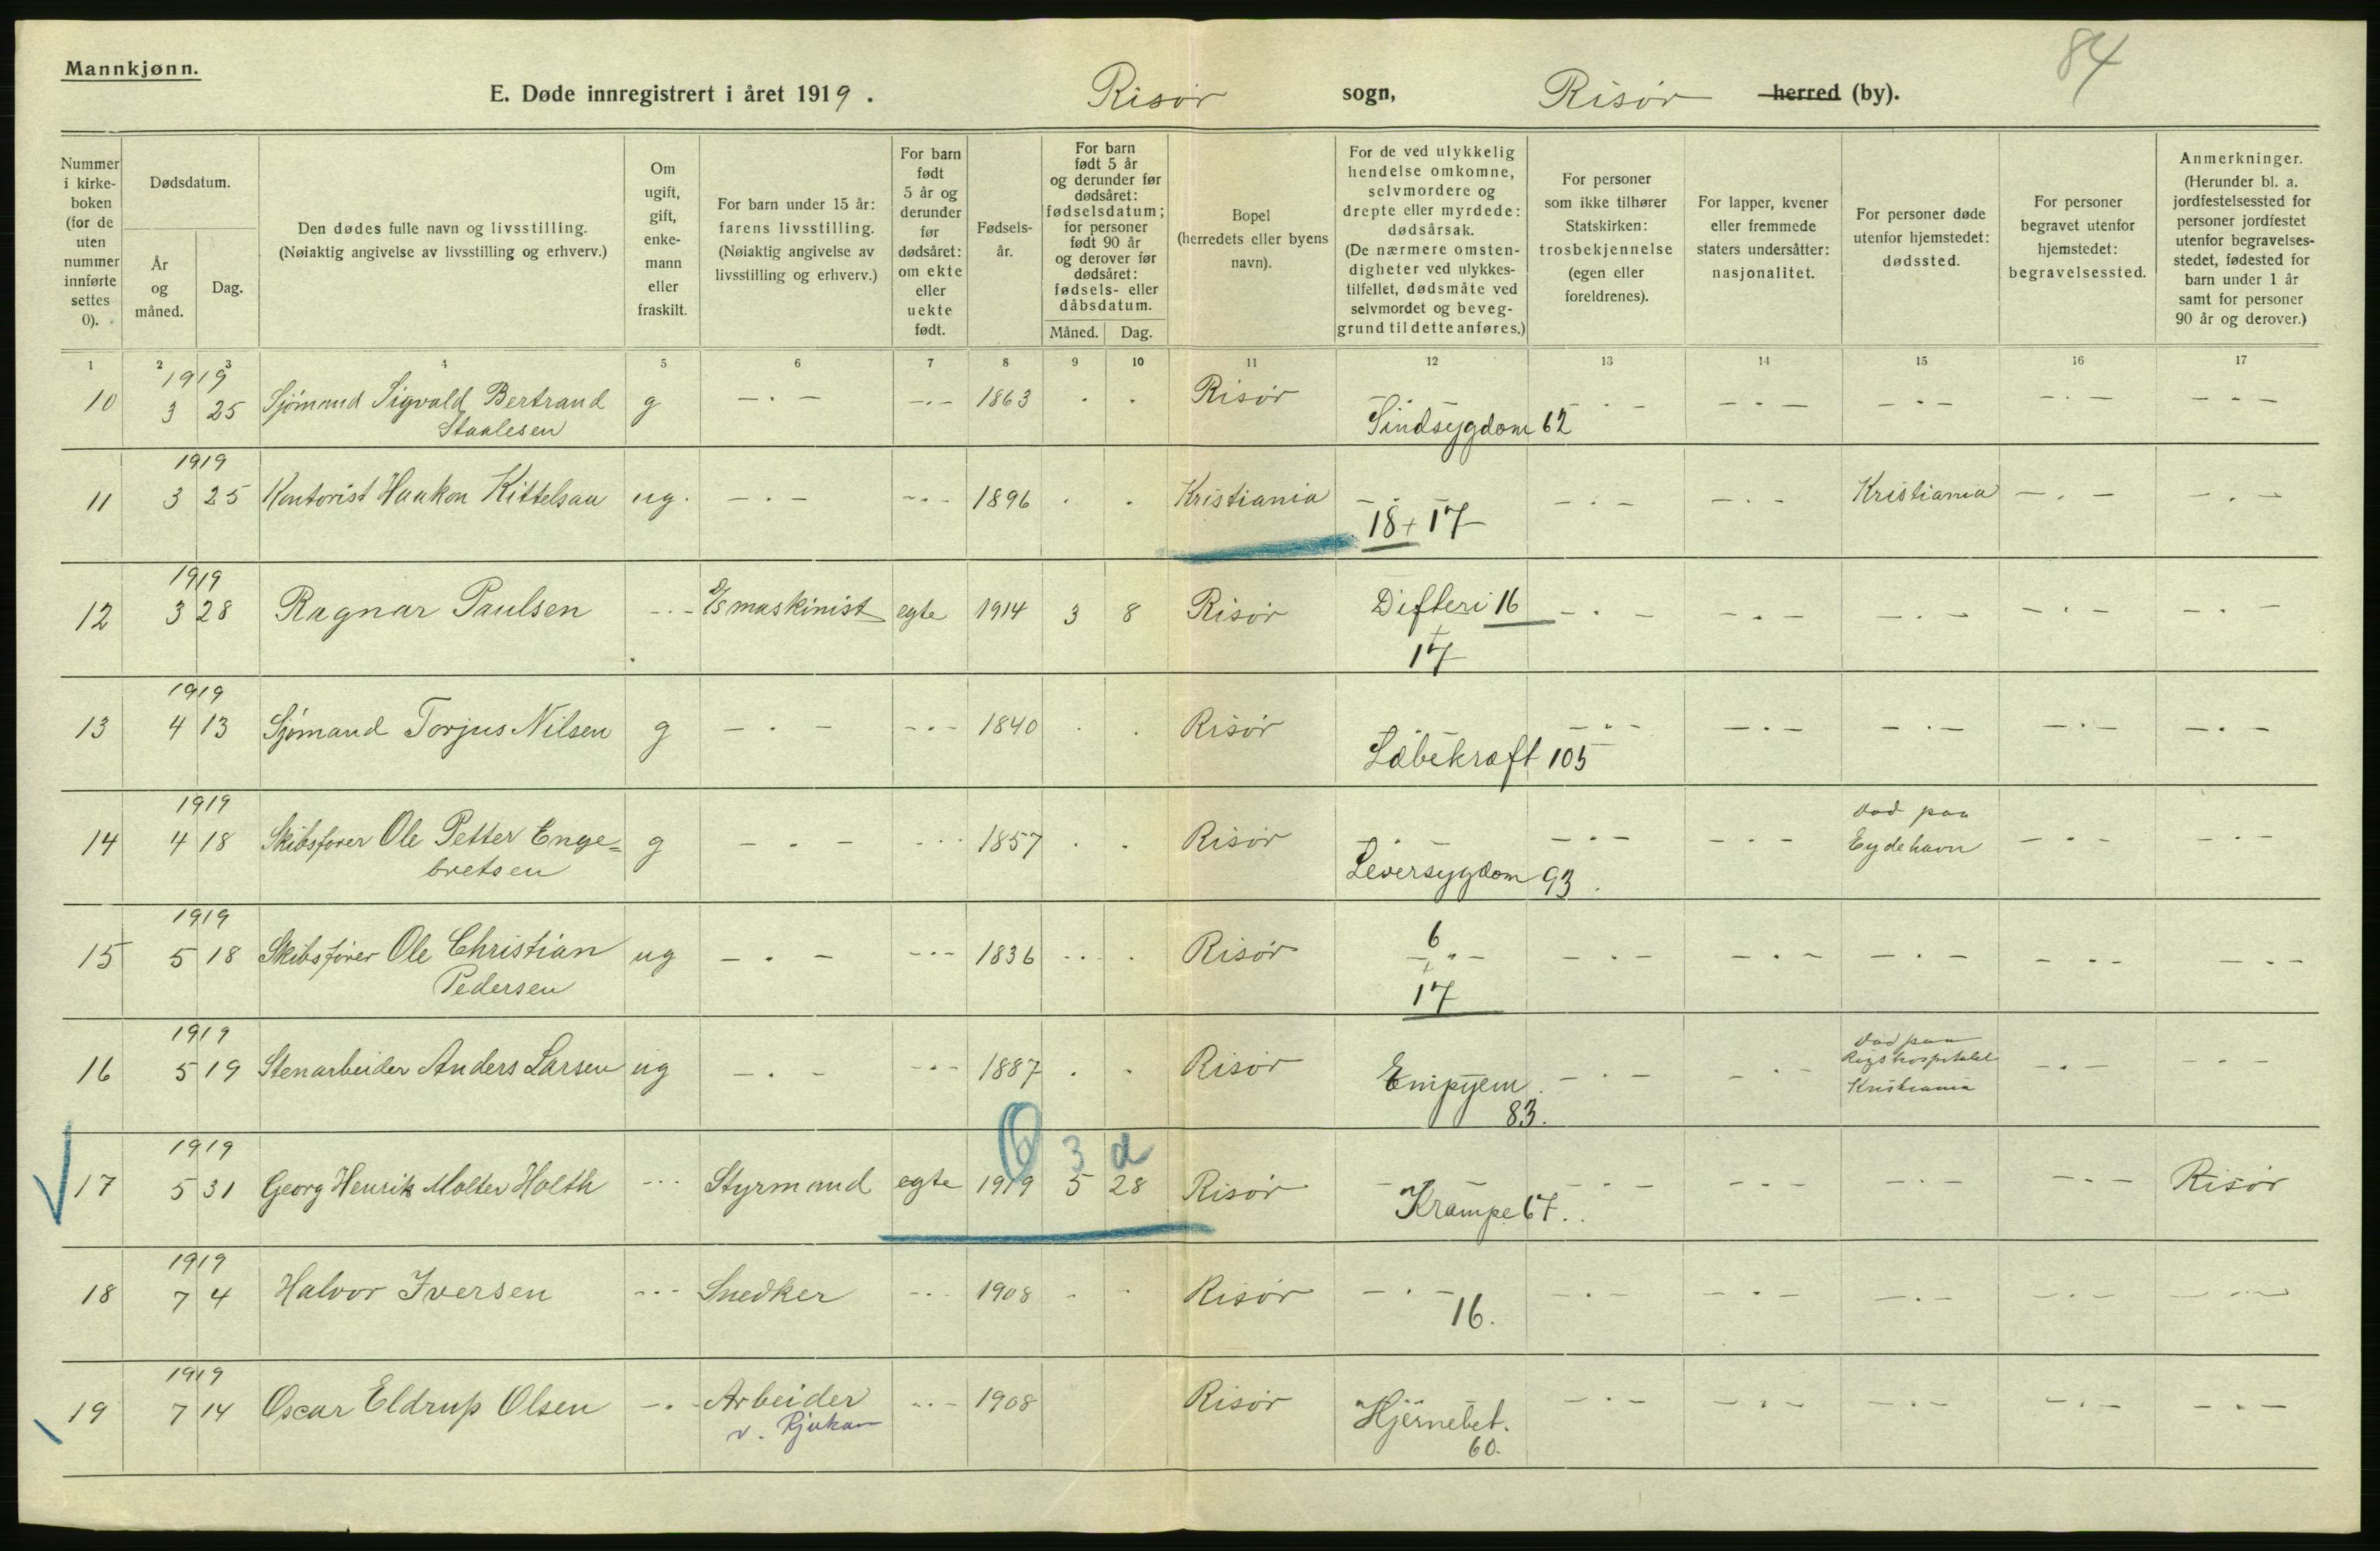 84
Mannkjønn.
E. Døde innregistrert i året 1919. Risør sogn, Risør herred (by).
Nummer i kirke-boken (for de uten nummer innførte settes 0).
Dødsdatum.
År og måned.
Dag.
Den dødes fulle navn og livsstilling.
(Nøiaktig angivelse av livsstilling og erhverv.)
Om ugift, gift, enke-mann eller fraskilt.
For barn under 15 år: farens livsstilling. (Nøiaktig angivelse av livsstilling og erhverv.)
For barn født 5 år og derunder før dødsåret: om ekte eller uekte født.
Fødsels-år.
For barn født 5 år og derunder før dødsåret: fødselsdatum; for personer født 90 år og derover før dødsåret: fødsels- eller dåbsdatum.
Måned. Dag.
Bopel (herredets eller byens navn).
For de ved ulykkelig hendelse omkomne, selvmordere og drepte eller myrdede: dødsårsak. (De nærmere omsten-digheter ved ulykkes-tilfellet, dødsmåte ved selvmordet og beveg-grund til dette anføres.)
For personer som ikke tilhører Statskirken: trosbekjennelse (egen eller foreldrenes).
For lapper, kvener eller fremmede staters undersåtter: nasjonalitet.
For personer døde utenfor hjemstedet: dødssted.
For personer begravet utenfor hjemstedet: begravelsessted.
Anmerkninger. (Herunder bl. a. jordfestelsessted for personer jordfestet utenfor begravelses-stedet, fødested for barn under 1 år samt for personer 90 år og derover.)
1 2 3 4 5 6 7 8 9 10 11 12 13 14 15 16 17
1919
10 3 25 Sjømand Sigvald Bertrand g - . - - . - 1863 . . Risør - . - - . - - . - - . - - . -
Staalesen Sindsygdom 62
1919
11 3 25 Kontorist Haakon Kittelsen ug. - . - - . - 1896 . . Kristiania - . - - . - - . - Kristiania - . - - . -
18 + 17
1919
12 3 28 Ragnar Paulsen - . - D/S maskinist egte 1914 3 8 Risør Difteri 16 - . - - . - - . - - . - - . -
+
17
1919
13 4 13 Sjømand Torjus Nilsen g - . - - . - 1840 . . Risør - . - - . - - . - - . - - . -
Læbekræft 105
1919
14 4 18 Skibsfører Ole Petter Enge= g - . - - . - 1857 . . Risør - . - - . - Død paa - . - - . -
bretsen Leversygdom 93. Eydehavn
1919
15 5 18 Skibsfører Ole Christian ug - . - - . - 1836 . . Risør 6 - . - - . - - . - - . - - . -
Pedersen + 17
1919
16 5 19 Stenarbeider Anders Larsen ug - . - - . - 1887 . . Risør Empyem - . - - . - Død paa - . - - . -
83. Rigshospitalet
Kristiania
6 3 d
1919
17 5 31 Georg Henrik Molter Holth - . - Styrmand egte 1919 5 28 Risør - . - - . - - . - - . - - . - Risør
Krampe 67.
1919
18 7 4 Halvor Iversen - . - Snedker - . - 1908 . . Risør - . - - . - - . - - . - - . - - . -
16.
1919
19 7 14 Oscar Eldrup Olsen - . - Arbeider - . - 1908 Risør Hjernebet. - . - - . - - . - - . - - . -
v. Rjukan 60.